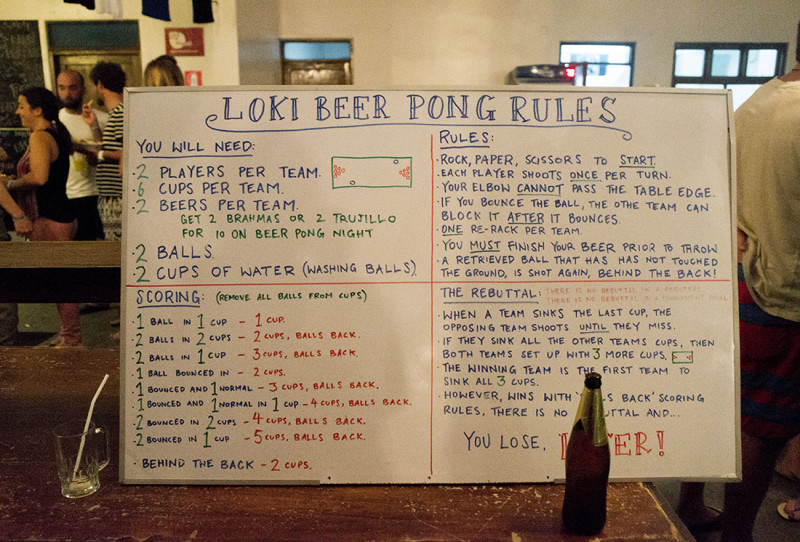 LOKI BEER PONG RULES
YOU WILL NEED:
·2 PLAYERS PER TEAM.
·6 CUPS PER TEAM.
·2 BEERS PER TEAM.
GET 2 BRAHMAS OR 2 TRUJILLO
FOR 10 ON BEER PONG NIGHT
·2 BALLS.
·2 CUPS OF WATER (WASHING BALLS).
RULES:
·ROCK, PAPER, SCISSORS TO START.
·EACH PLAYER SHOOTS ONCE PER TURN.
·YOUR ELBOW CANNOT PASS THE TABLE EDGE.
·IF YOU BOUNCE THE BALL, THE OTHE TEAM CAN
BLOCK IT AFTER IT BOUNCES.
·ONE RE-RACK PER TEAM.
·YOU MUST FINISH YOUR BEER PRIOR TO THROW
·A RETRIEVED BALL THAT HAS HAS NOT TOUCHED
THE GROUND, IS SHOT AGAIN, BEHIND THE BACK!
SCORING: (REMOVE ALL BALLS FROM CUPS)
·1 BALL IN 1 CUP - 1 CUP.
·2 BALLS IN 2 CUPS - 2 CUPS, BALLS BACK.
·2 BALLS IN 1 CUP - 3 CUPS, BALLS BACK.
·1 BALL BOUNCED IN - 2 CUPS.
·1 BOUNCED AND 1 NORMAL - 3 CUPS, BALLS BACK.
·1 BOUNCED AND 1 NORMAL IN 1 CUP - 4 CUPS, BALLS BACK.
·2 BOUNCED IN 2 CUPS - 4 CUPS, BALLS BACK.
·2 BOUNCED IN 1 CUP - 5 CUPS, BALLS BACK.
·BEHIND THE BACK - 2 CUPS.
THE REBUTTAL: THERE IS NO REBUTTAL IN A
THERE IS NO REBUTTAL IN A
·WHEN A TEAM SINKS THE LAST CUP, THE
OPPOSING TEAM SHOOTS UNTIL THEY MISS.
·IF THEY SINK ALL THE OTHER TEAMS CUPS, THEN
BOTH TEAMS SET UP WITH 3 MORE CUPS.
·THE WINNING TEAM IS THE FIRST TEAM TO
SINK ALL 3 CUPS.
·HOWEVER, WINS WITH BACK' SCORING
RULES, THERE IS NO AND...
YOU LOSE,